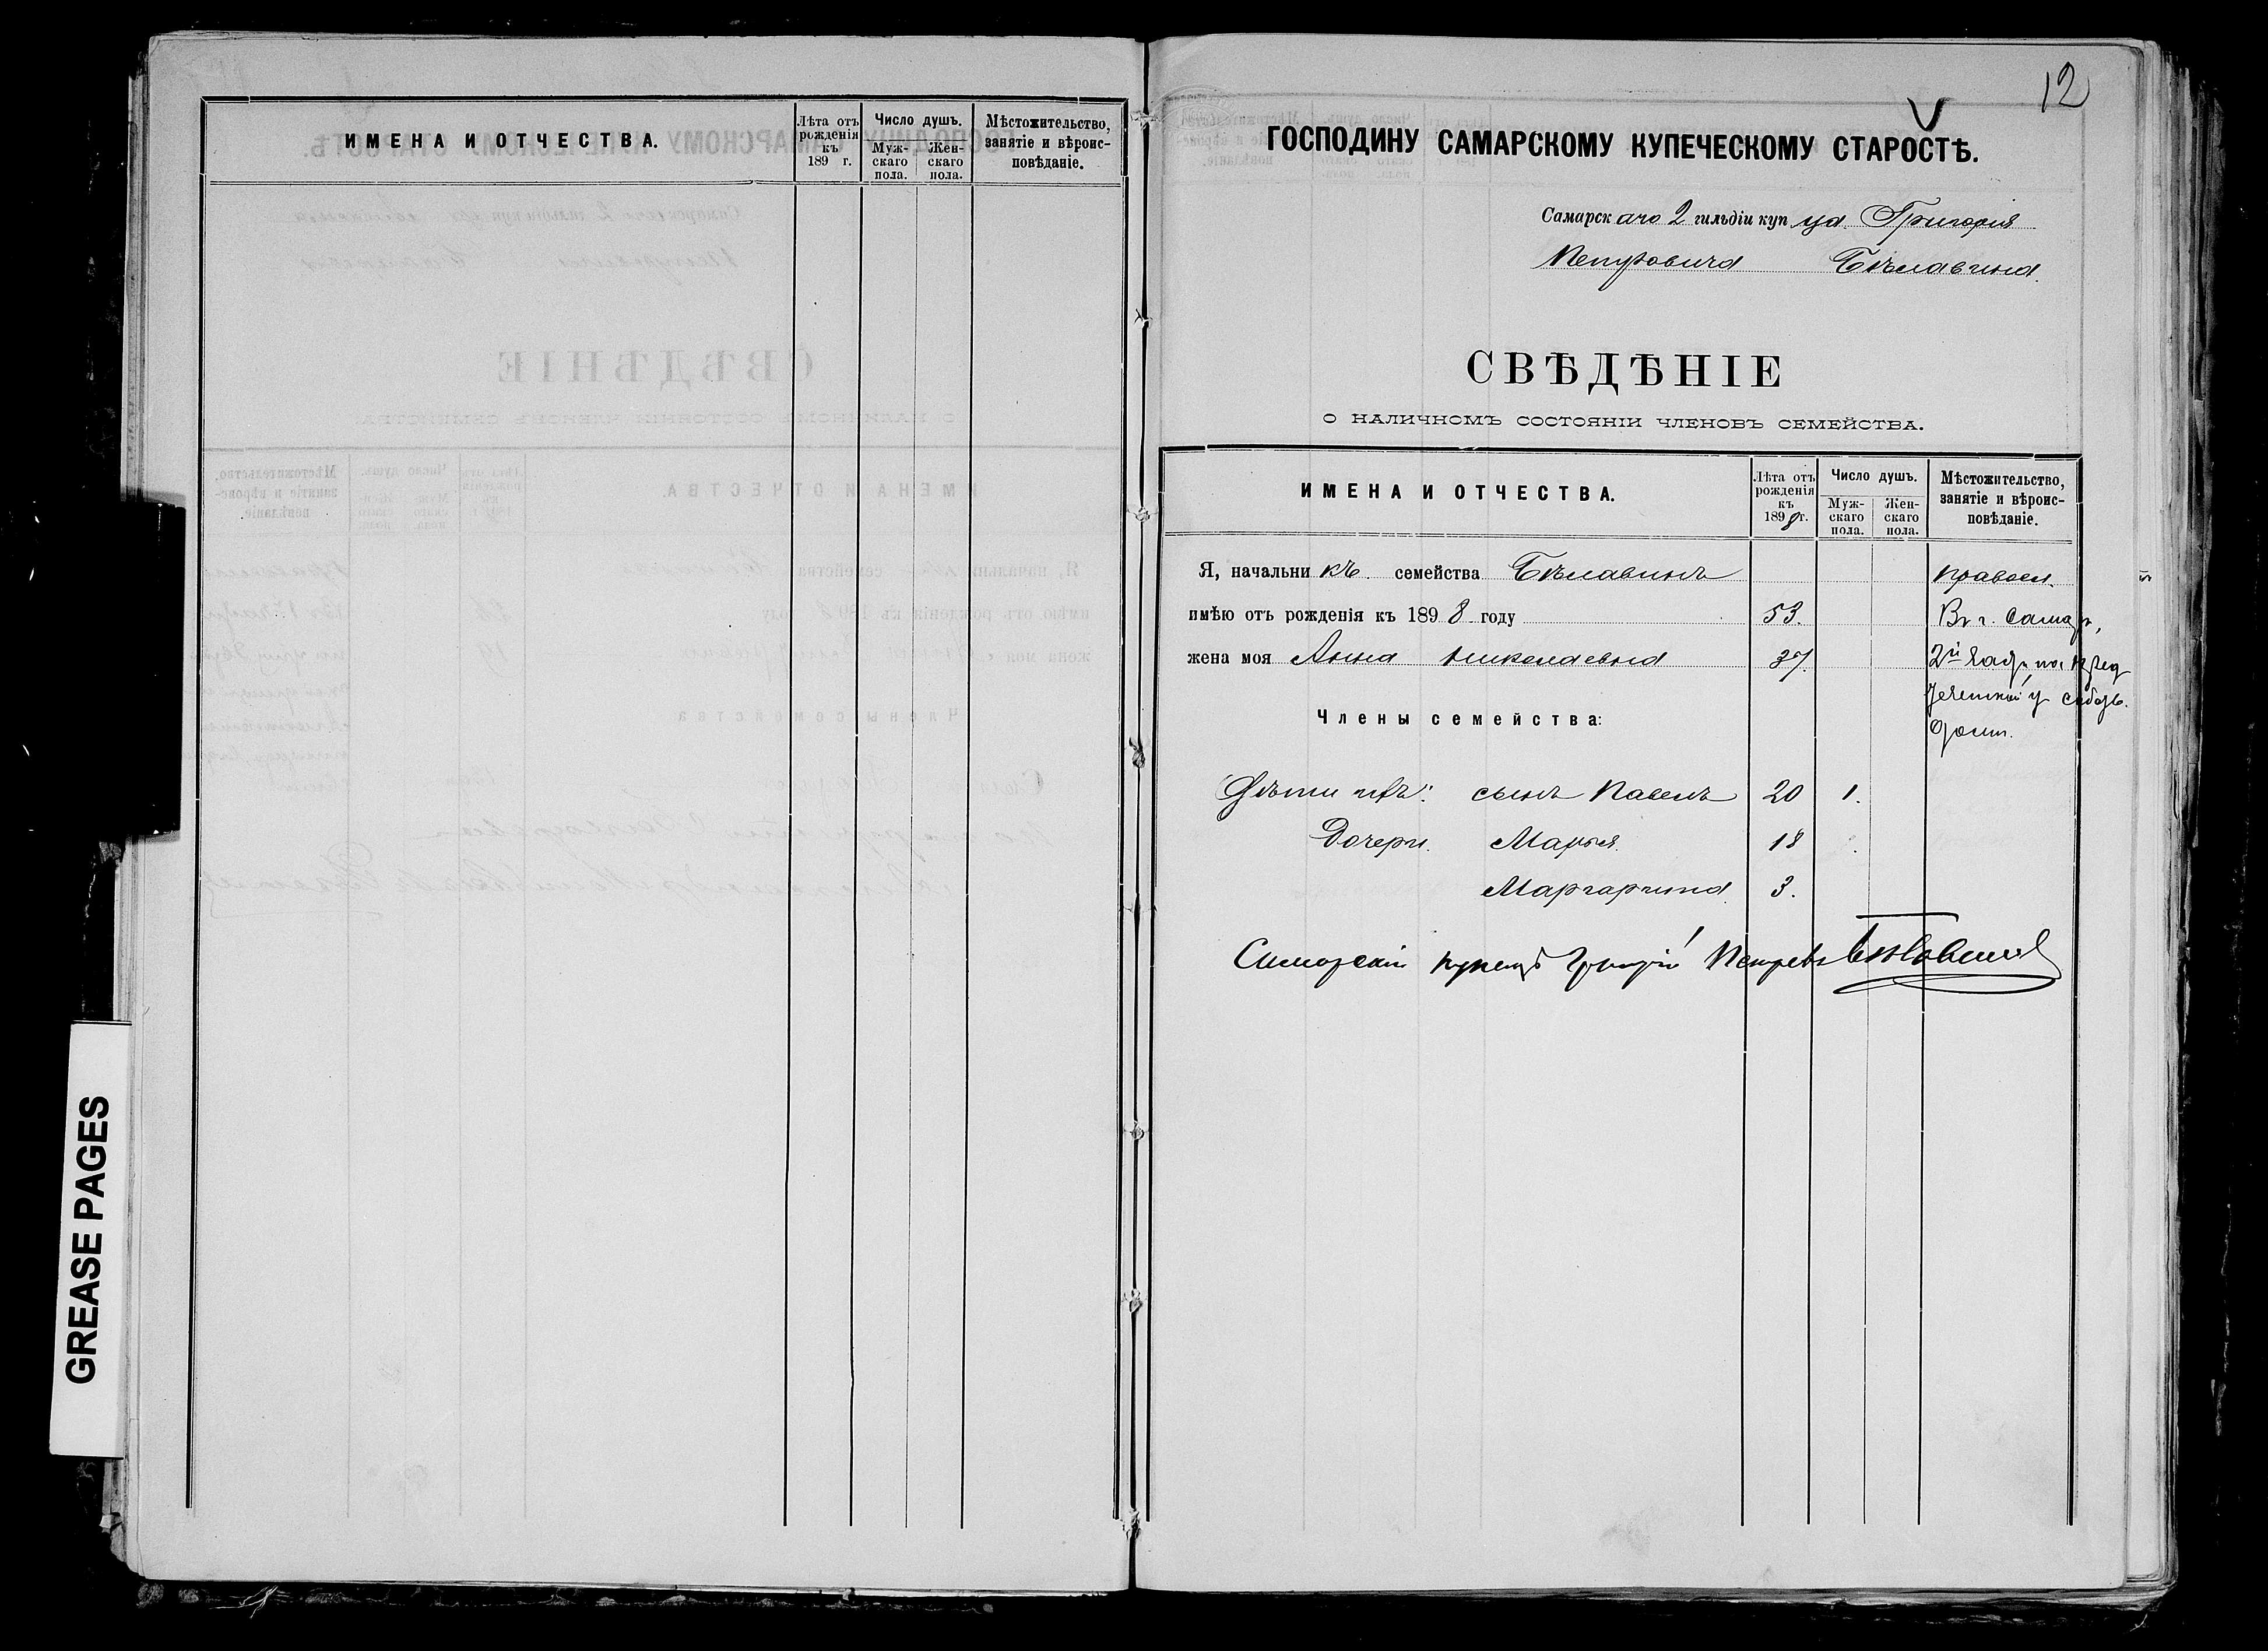 ИМЕНА И ОТЧЕСТВА.
Лѣта отъ рожденія къ 189 г.
Число душъ.
Муж-скаго пола.
Жен-скаго пола.
Мѣстожительство, занятіе и вѣроис-повѣданіе.
GREASE PAGES
12
ГОСПОДИНУ САМАРСКОМУ КУПЕЧЕСКОМУ СТАРОСТѢ.
Самарскаго 2 гильдіи купца Григорія
Петровича Бѣлавина.
СВѢДѢНІЕ
О НАЛИЧНОМЪ СОСТОЯНІИ ЧЛЕНОВЪ СЕМЕЙСТВА.
ИМЕНА И ОТЧЕСТВА.
Лѣта отъ рожденія къ 1898 г.
Число душъ.
Муж-скаго пола.
Жен-скаго пола.
Мѣстожительство, занятіе и вѣроис-повѣданіе.
Я, начальникъ семейства Бѣлавинъ правосл.
имѣю отъ рожденія къ 1898 году 53. Въ г. Самарѣ,
жена моя Анна Николаевна 37. 2й
Члены семейства:
Дѣти ихъ: сынъ Павелъ 20 1.
Дочери Марья 18
Маргарита 3.
Самарскій купецъ Григорій Петровъ Бѣлавинъ